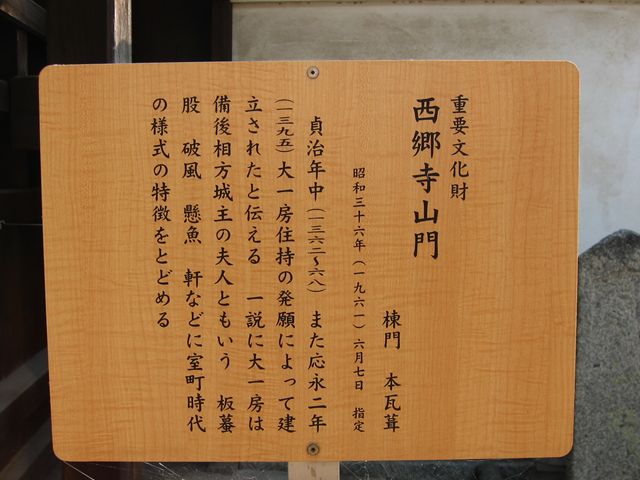 重要文化財
西郷寺山門
棟門 本瓦葺
昭和三十六年(一九六一)六月七日 指定
貞治年中(一三六二~六八) また応永二年
(一三九五)大一房住持の発願によって建
立されたと伝える 一説に大一房は
備後相方城主の夫人ともいう 板蟇
股 破風 懸魚 軒などに室町時代
の様式の特徴をとどめる